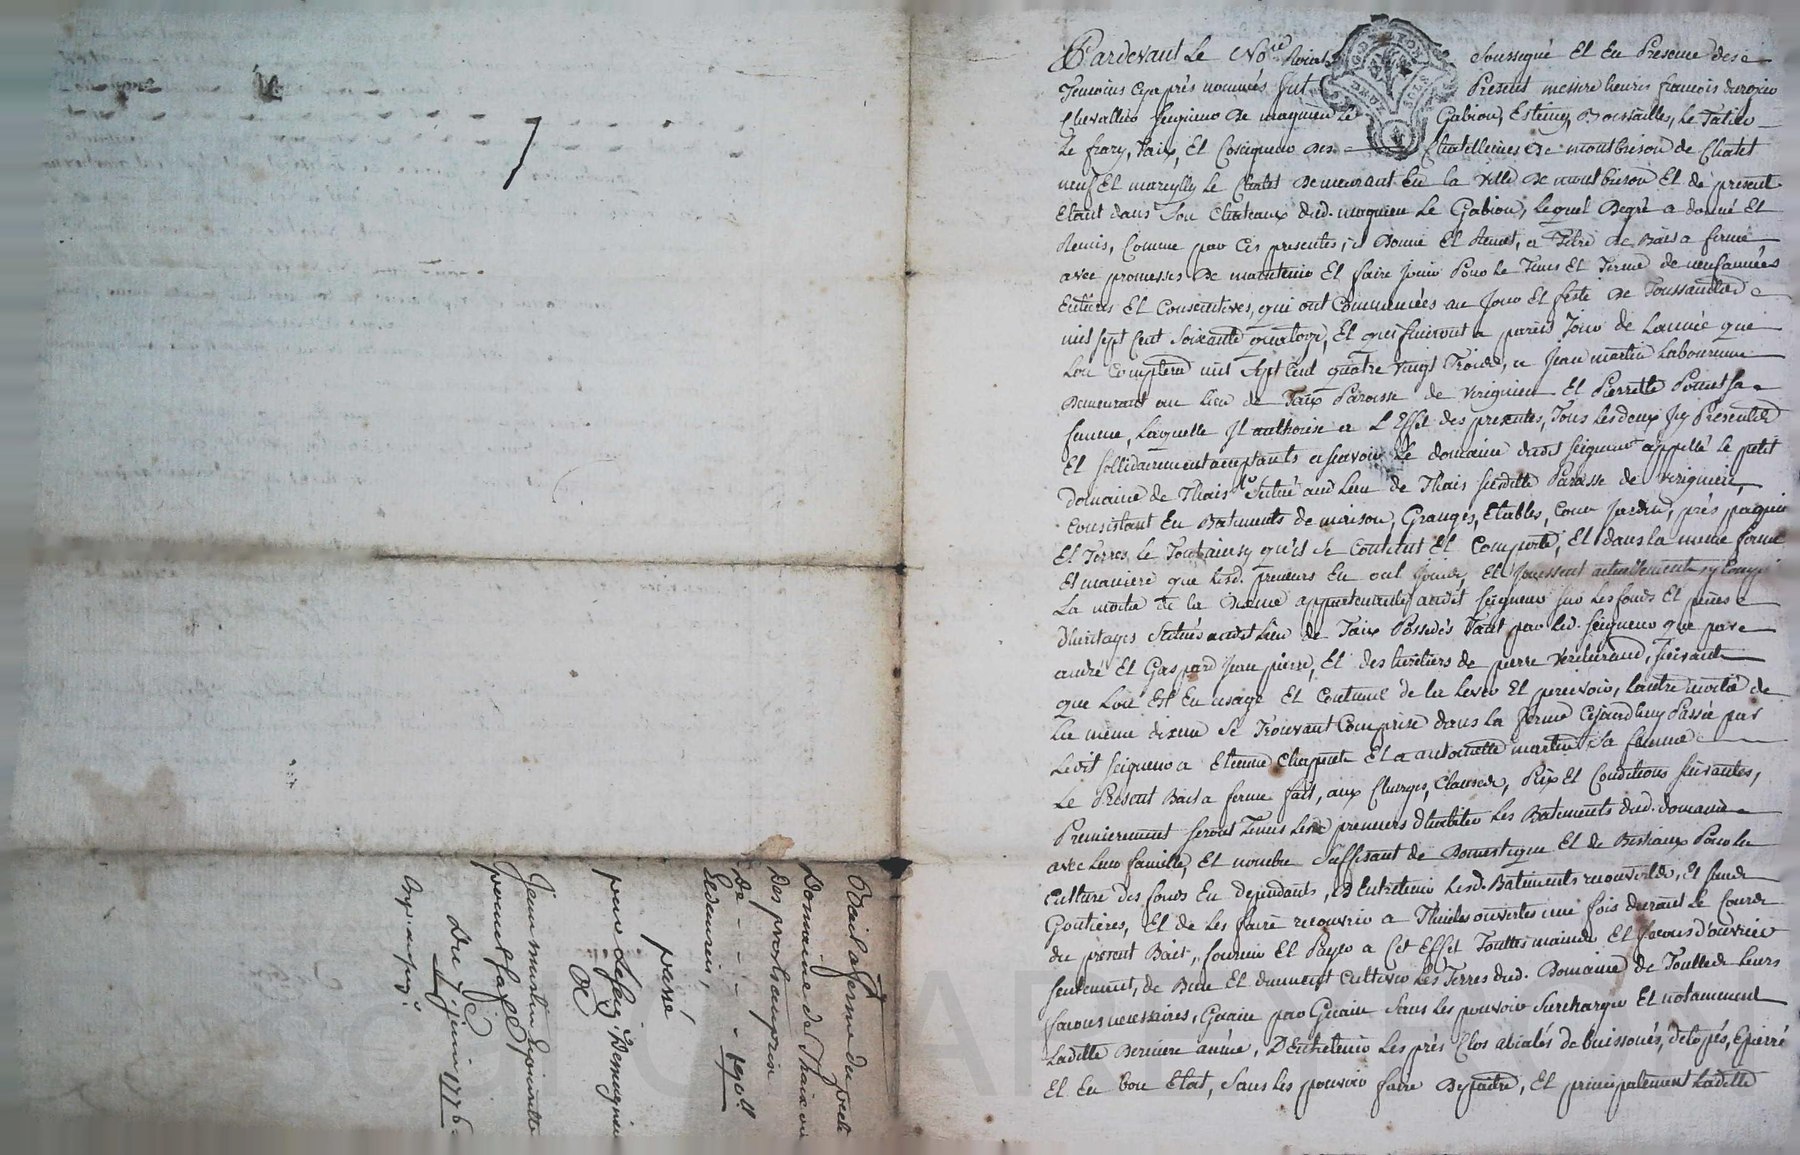 Pardevant Le No.re Roial Soussigné Et En Presence des
Temoins Cyaprés nommés fut Present messire henris francois
Chevallier Seigneur De magnieu le Gabion, Esteing, Boissailles, Le
Le frary, Et Coseigneur des Chatellenies De montbrison de Chatel
neuf Et mareylly le Chatel Demeurant En la Ville De montbrison Et de present
Etant dans Son Chateaux dud. magnieu Le Gabion, Lequel De gré a donné Et
Remis, Comme par Ces presentes, il Donne Et Remet, a Titre de Bail a ferme
avec promesses De maintenir Et faire Jouir Pour le Tems Et Terme de neuf années
Entieres Et Consecutives, qui ont Commencées au Jour Et feste De Toussaint
mil sept Cent Soixante quatorze, Et qui finiront a pareil Jour de Lannée que
Lon Comptera mil Sept Cent quatre Vingt Trois, a Jean martin Laboureur
Demeurant au Lieu de Taix Paroisse de Verignieu Et Pierrette Ponet sa
femme, Laquelle Il authorise a L'Effet des presentes, Tous Les deux Icy Presents
Et Sollidairement acceptants a scavoir Le domaine dudit Seigneur appellé le petit
Domaine de Thais Situé aud Lieu de Thais Susditte Paroisse de Verignieu,
Consistant En Batiments de maison, Granges, Etables, Cour Jardin, prés paquiers
Et Terres, Le Tout ainsy qu'il Se Contient Et Comporte, Et dans la meme forme
Et maniere que Lesd. preneurs En ont Joui, Et Jouissent actuellement, y Compris
La moitié de la Dixme appartenante audit Seigneur Sur Les fonds Et pieces
D'heritages Situés audit Lieu de Taix Possedés Tant par Led. Seigneur que par
andré Et Gaspard Jean pierre, Et des heritiers de pierre, Suivant
que Lon Est En usage Et Coutume de la Lever Et percevoir, Lautre moitié de
La même dixme Se Trouvant Comprise dans La ferme Cejourdhuy Passée par
Ledit Seigneur a Etienne Et a antoinette martin Sa femme
Le Present Bail a ferme fait, aux Charges, Clauses, Prix Et Conditions Suivantes,
Premierement Seront Tenus Lesd preneurs D'habiter Les Batiments dud. domaine
avec Leur famille, Et nombre Suffisant de Domestique Et de Bestiaux Pour La
Culture des fonds En dependants, D'Entretenir Lesd. Batiments recouverts, Et sans
Goutieres, Et de Les faire recouvrir a Thuiles ouvertes une fois durant Le Cours
du present Bail, fournir Et Payer a Cet Effet Touttes mains Et facons d'ouvrier
Seulement, de Bien Et dument Cultiver Les Terres dud. Domaine de Touttes Leurs
facons necessaires, Gueire par Gueire Sans Les pouvoir Surcharger Et notamment
Laditte Derniere année, D'Entretenir Les prés Clos de buissons, Epierré
Et En bon Etat, Sans Les pouvoir faire Depaitre, Et principalement Laditte
Bail a ferme du petit
Domaine de Thaix ou
Des prost au prix
De - - - - 190ll
Et denrées,
passé
par Le Seig.r De magnieu
A
Jean martin Et pierrette
ponet sa fe
Du 7 juin 1776